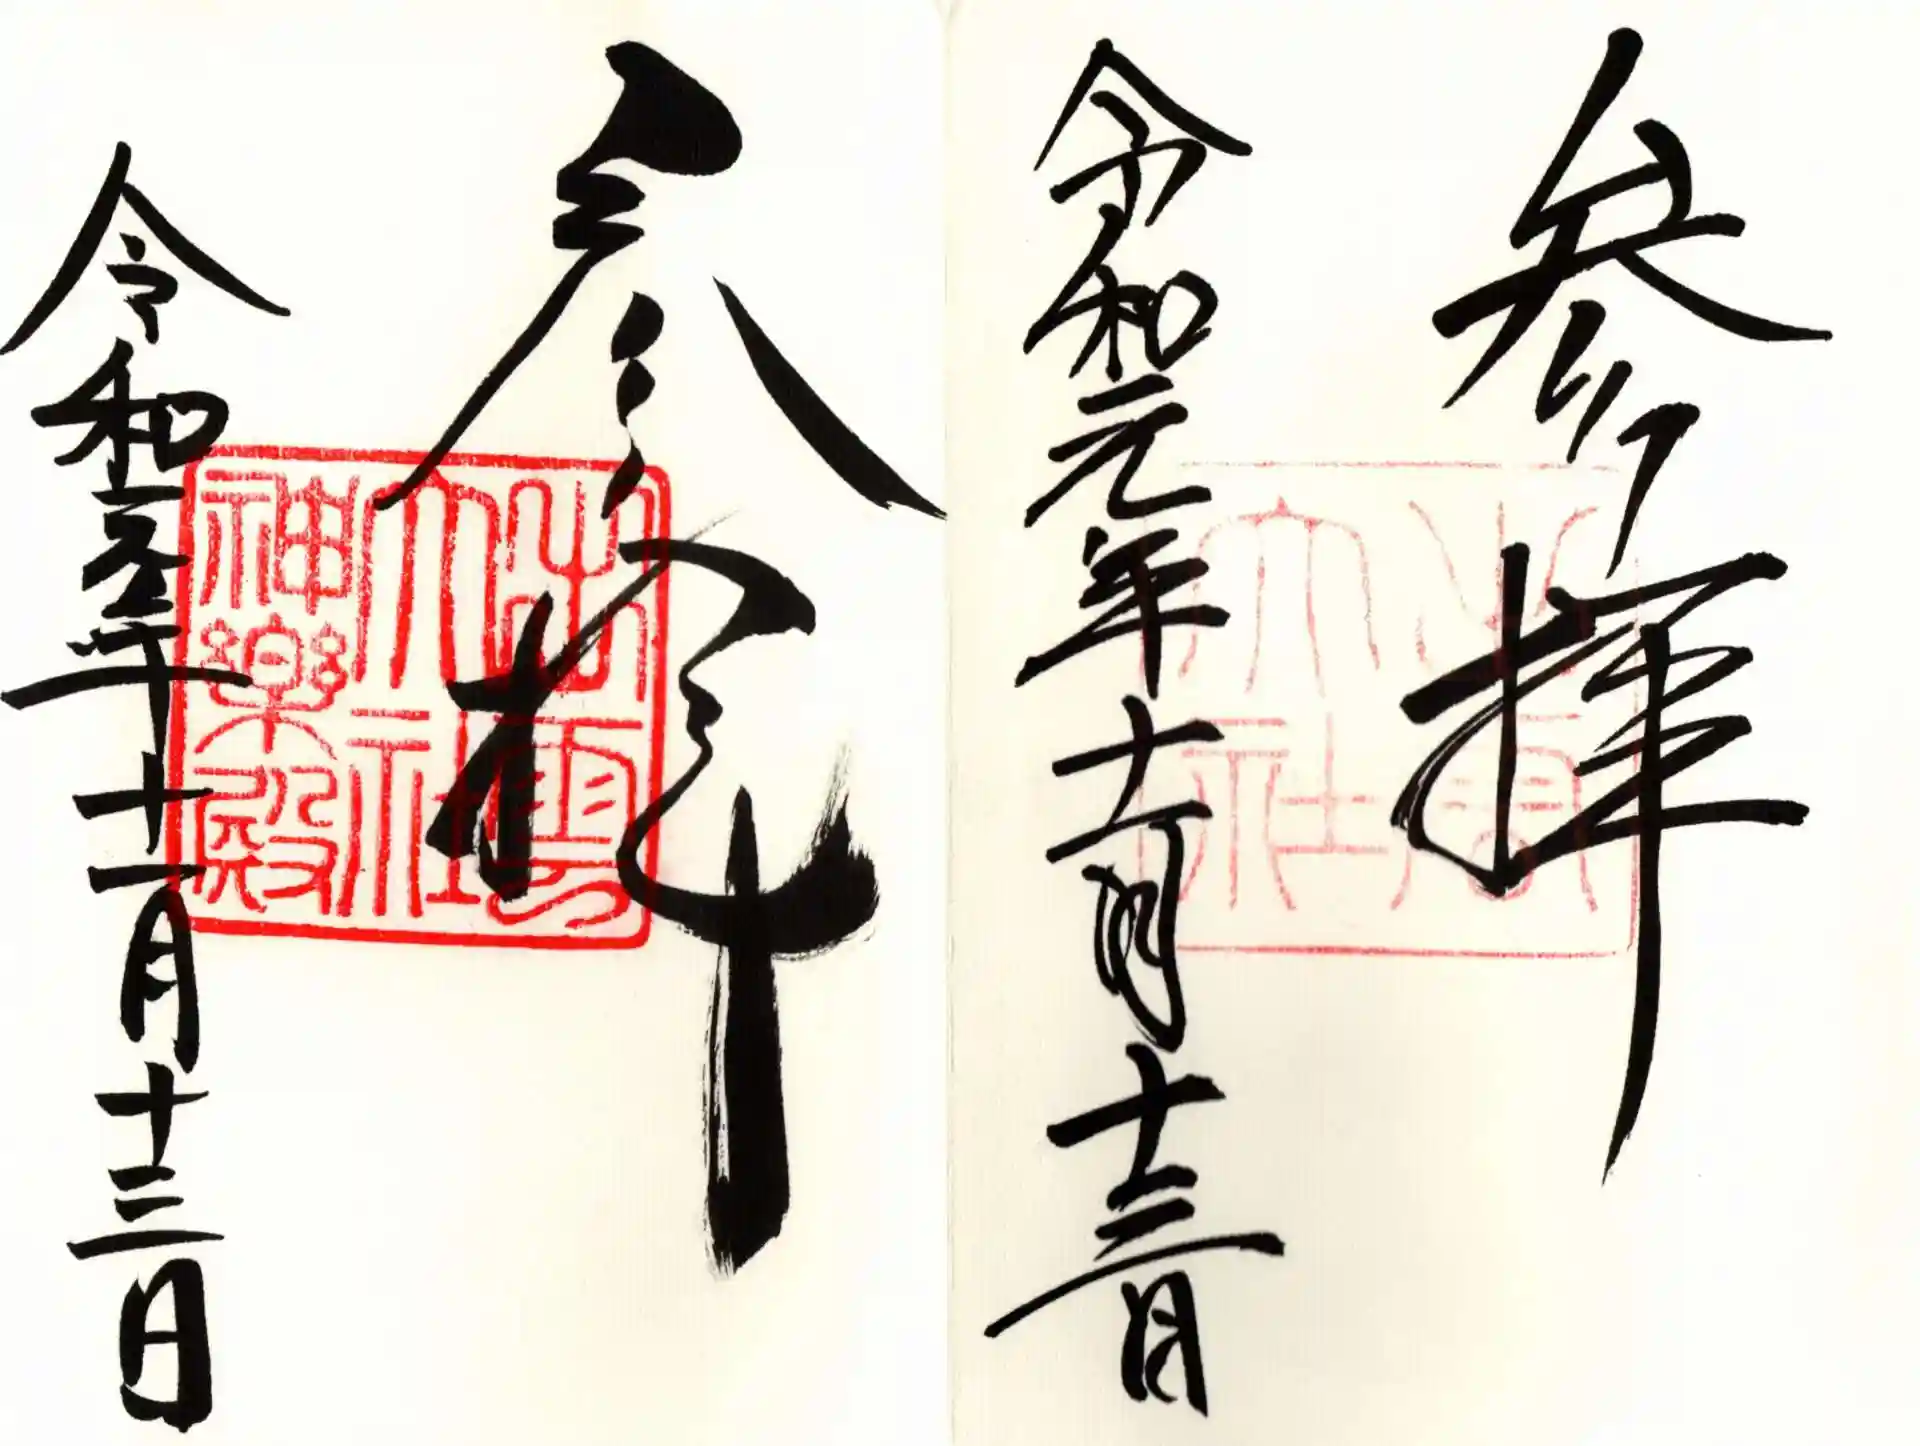 参拝
出雲
大社
令和元年十一月十三日
参拝
出雲
大社
神樂殿
令和年十一月十三日